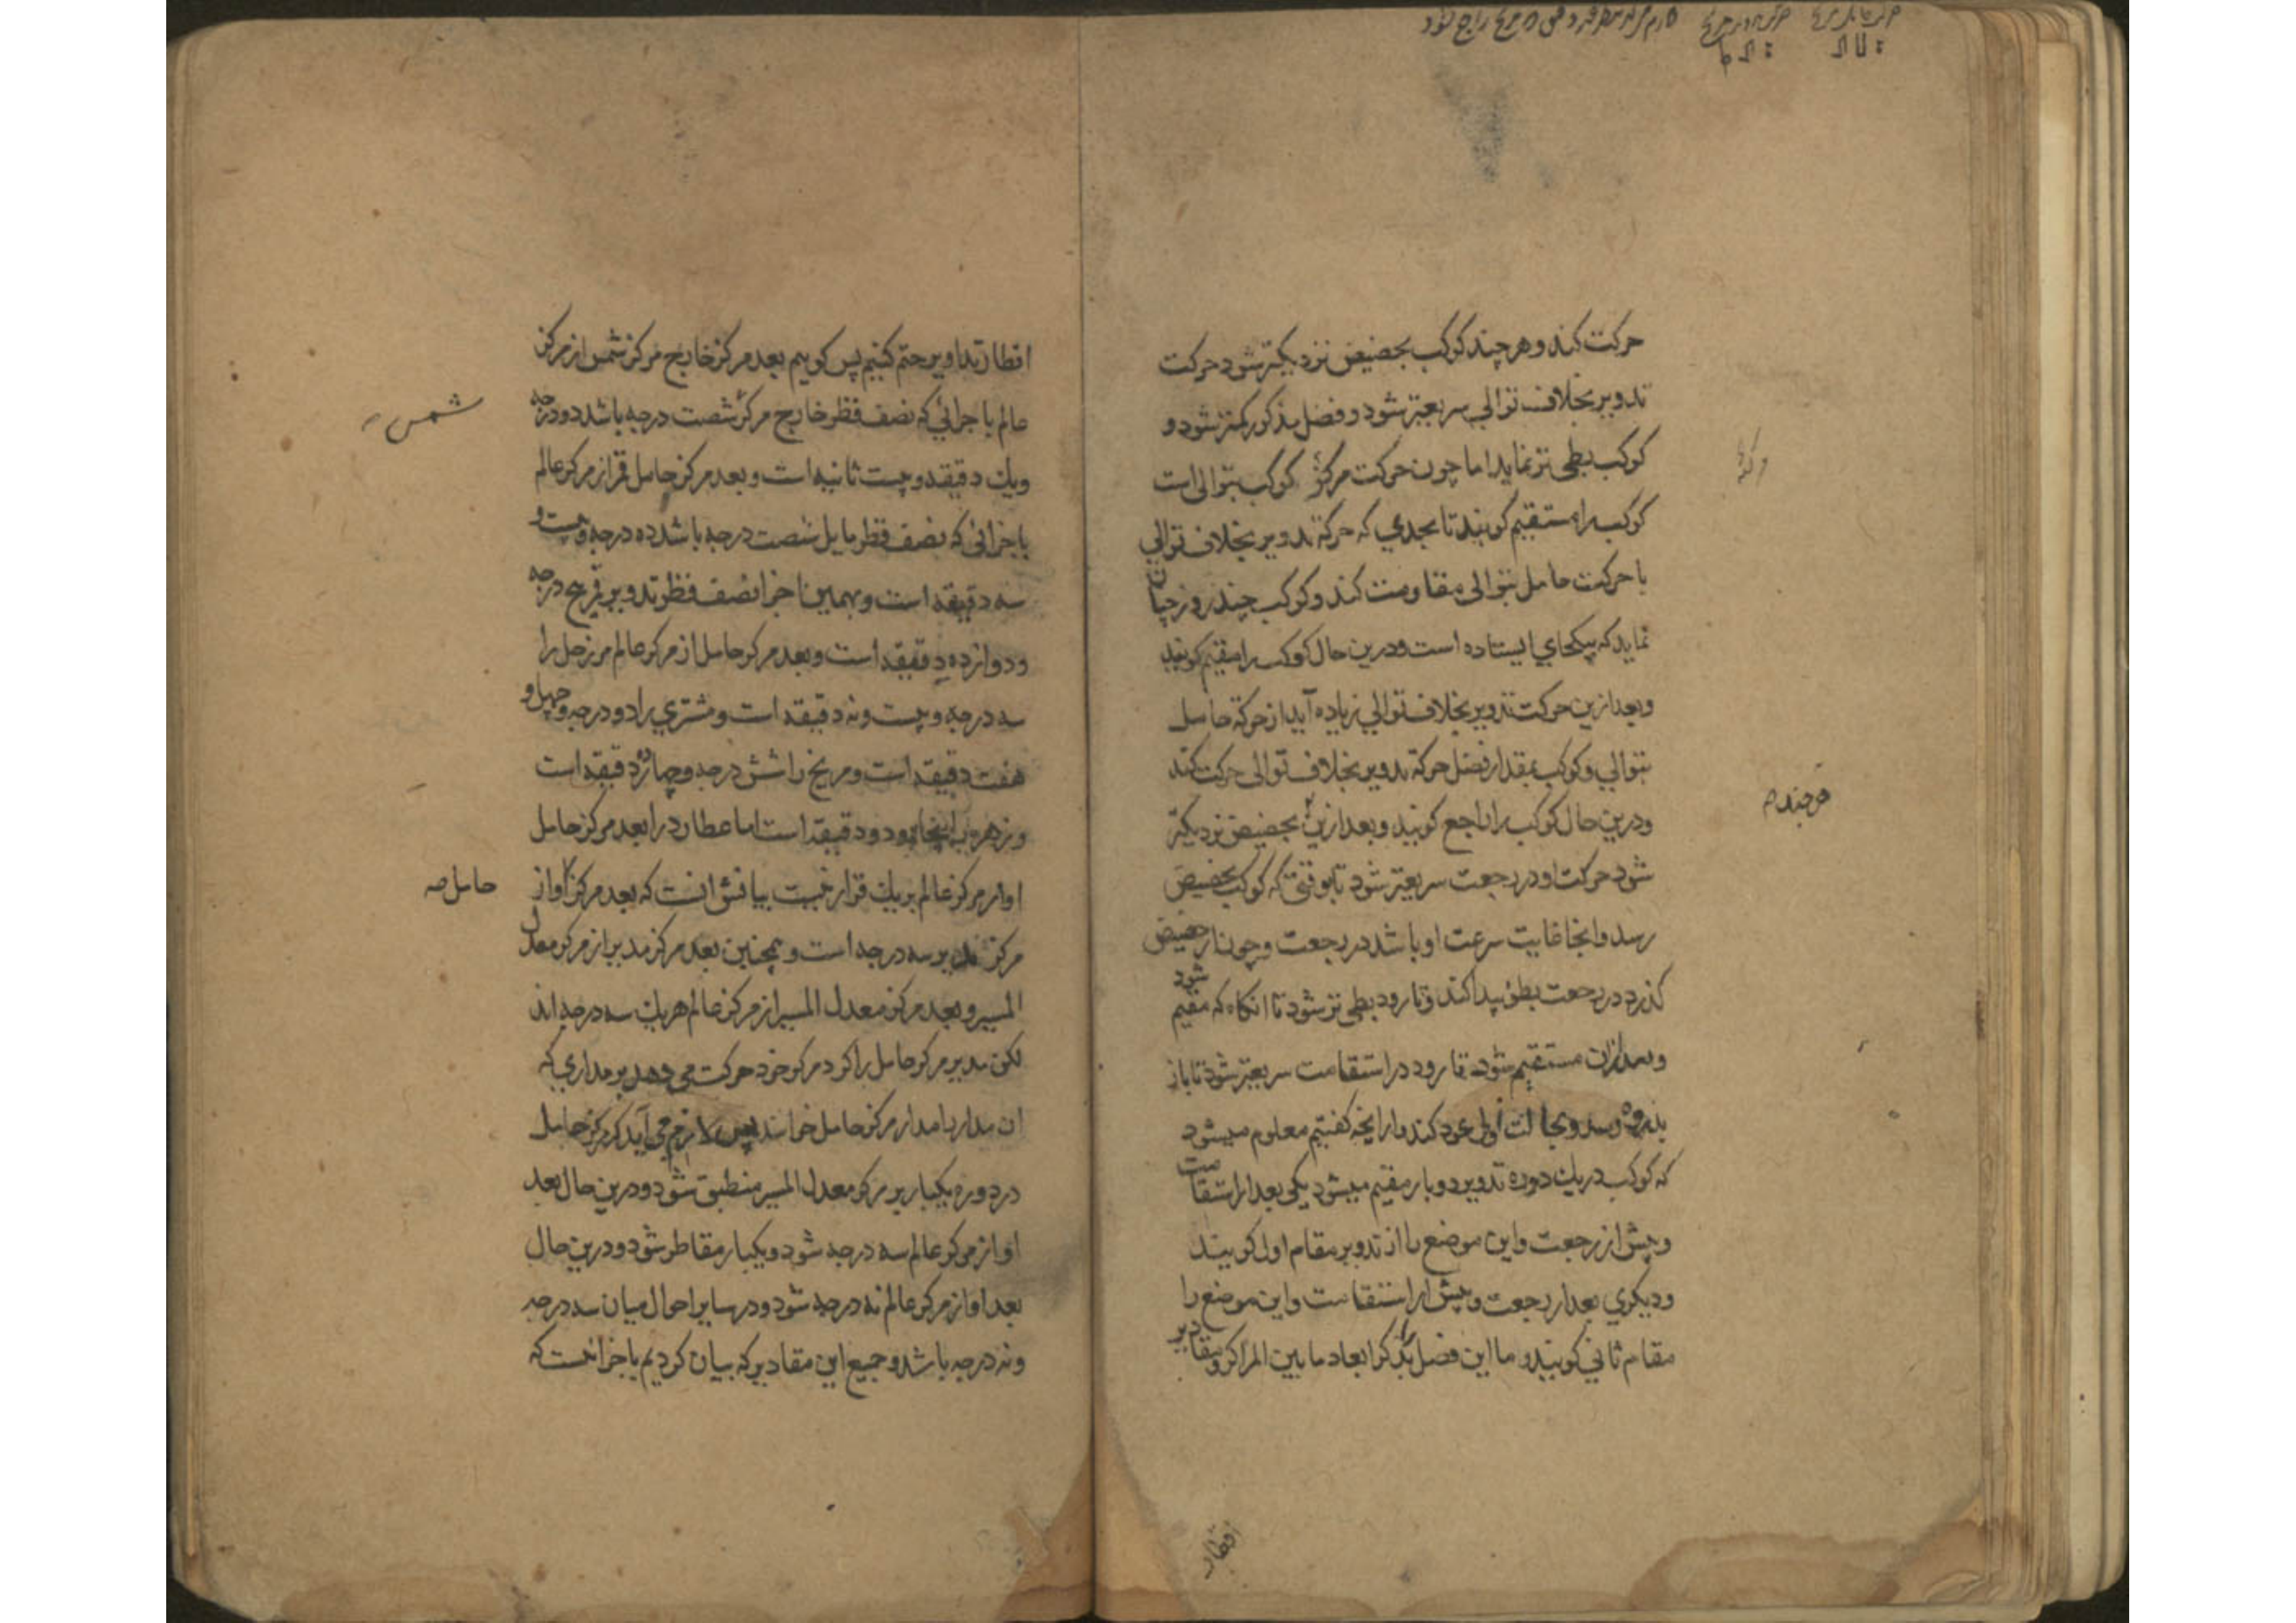 حرکت کند و هر چند کوکب بحضیض نزدیکتر شود حرکت
تدویر بخلاف توالی سریعتر شود و فضل مذکور کمتر شود و
کوکب بطی تر نماید اما چون حرکت مرکز کوکب بتوالی است
کوکب را مستقیم کویند تا بحدی که حرکة تدویر بخلاف توالی
با حرکت حامل بتوالی مقاومت کند و کوکب چند روز چنان
نماید که بیکجای ایستاده است و درین حال کوکب را مقیم کویند
و بعد ازین حرکت تدویر بخلاف توالی زیاده آید از حرکة حامل
بتوالی و کوکب بمقدار فضل حرکة تدویر بخلاف توالی حرکت کند
و درین حال کوکب را راجع کویند و بعد ازین بحضیض نزدیکتر
هر چند
شود حرکت او در رجعت سریعتر شود تا بوقتی که کوکب بحضیض
رسد و انجا غایت سرعت او باشد در رجعت و چون از حضیض
کذرد در رجعت بطؤ پیدا کند و تا رود بطی تر شود تا انکاه که مقیم شود
و بعد ازان مستقیم شود و تا رود در استقامت سریعتر شود تا باز
بذروه رسد و بحالت اولی عود کند و از انچه کفتیم معلوم میشود
که کوکب در یک دوره تدویر دو بار مقیم میشود یکی بعد از استقامت
و پیش از رجعت و این موضع را از تدویر مقام اول کویند
و دیکری بعد از رجعت و پیش از استقامت و این موضع را
مقام ثانی کویند و ما این فصل بذکر ابعاد ما بین المراکز و مقادیر
اقطار
اقطار تداویر ختم کنیم پس کوییم بعد مرکز خارج مرکز شمس از مرکز
شمس
عالم باجزائی که نصف قطر خارج مرکز شصت درجه باشد دو درجه
ویک دقیقه و بیست ثانیه است و بعد مرکز حامل قمر از مرکز عالم
باجزائی که نصف قطر مایل شصت درجه باشد ده درجه و بیست و
سه دقیقه است و بهمین اجزا نصف قطر تدویر قمر پنج درجه
و دوازده دقیقه است و بعد مرکز حامل از مرکز عالم مر زحل را
سه درجه و بیست و نه دقیقه است و مشتری را دو درجه و چهل و
هفت دقیقه است و مریخ را شش درجه و دقیقه است
و زهره و دو دقیقه است اما عطارد را بعد مرکز حامل
او از مرکز عالم بر یک قرار نیست بیانش انست که بعد مرکز او از
حامل
مرکز مدیر سه درجه است و همچنین بعد مرکز مدیر از مرکز معدل
المسیر و بعد مرکز معدل المسیر از مرکز عالم هر یک سه درجه اند
لکن مدیر مرکز حامل را کرد مرکز خود حرکت می دهد بر مداری که
ان مدار را مدار مرکز حامل خوانند پس لازم می آید که مرکز حامل
در دوره یکبار بر مرکز معدل المسیر منطبق شود و درین حال بعد
او از مرکز عالم سه درجه شود و یکبار مقاطر شود و درین حال
بعد او از مرکز عالم نه درجه شود و در سایر احوال میان سه درجه
و نه درجه باشد و جمیع این مقادیر که بیان کردیم باجزائیست که